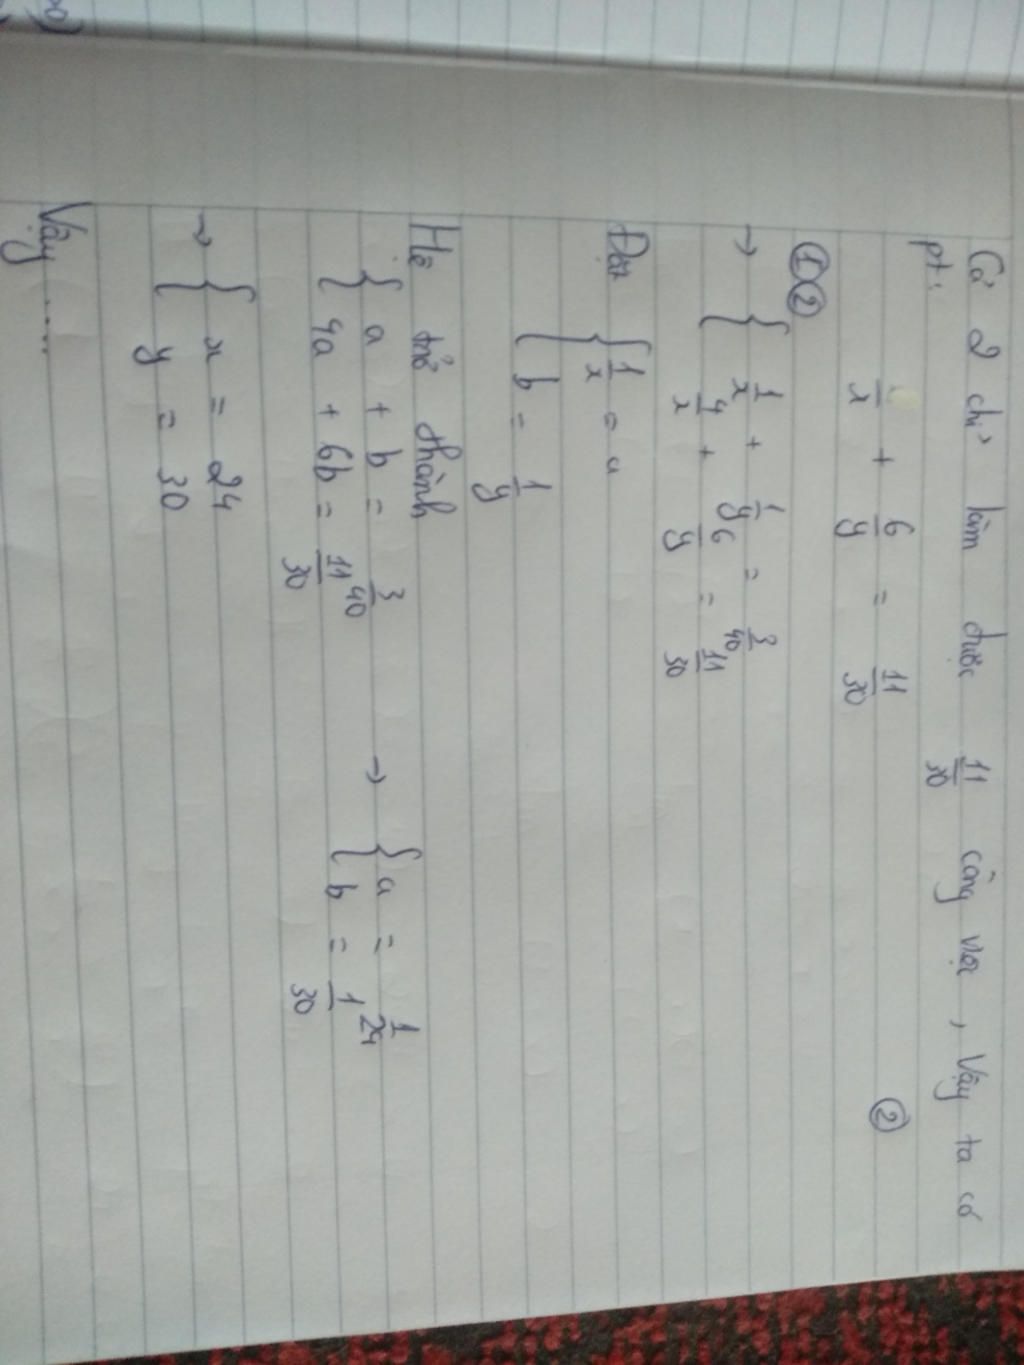 Cả 2 chị làm được 11/30 công việc, Vậy ta có
pt:
/x + 6/y = 11/30 ②
①②
→ { 1/x + 1/y = 3/40
4/x + 6/y = 11/30
Đặt { 1/x = a
b = 1/y
Hệ trở thành
{ a + b = 3/40 → { a = 1/24
4a + 6b = 11/30 b = 1/30
→ { x = 24
y = 30
Vậy .....